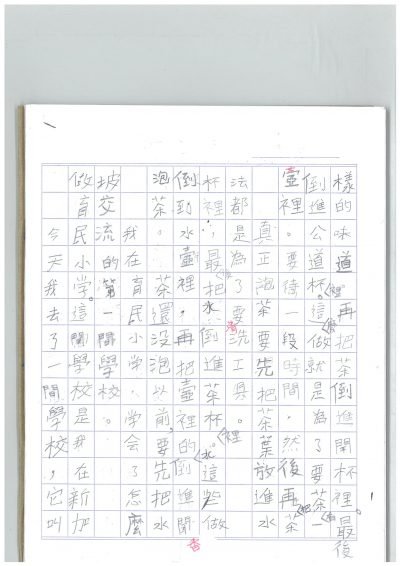 今天我去了一間學校，它叫
做育民小學。這間學校是我在新加
坡交流的第一間學校。
我在育民小學學會了怎麼
泡茶。茶還沒泡以前，要先把水
倒到水壺裡，再把壺裡的水倒進聞香
杯裡，最後把水倒進茶杯裡。這些做
法都是為了要洗工具。
真正泡茶要先把茶葉放進水
壺裡。要待一段時間。然後再把茶
倒進公道杯裡，這樣做就是為了要茶有一
樣的味道。再把茶倒進聞杯裡。最後